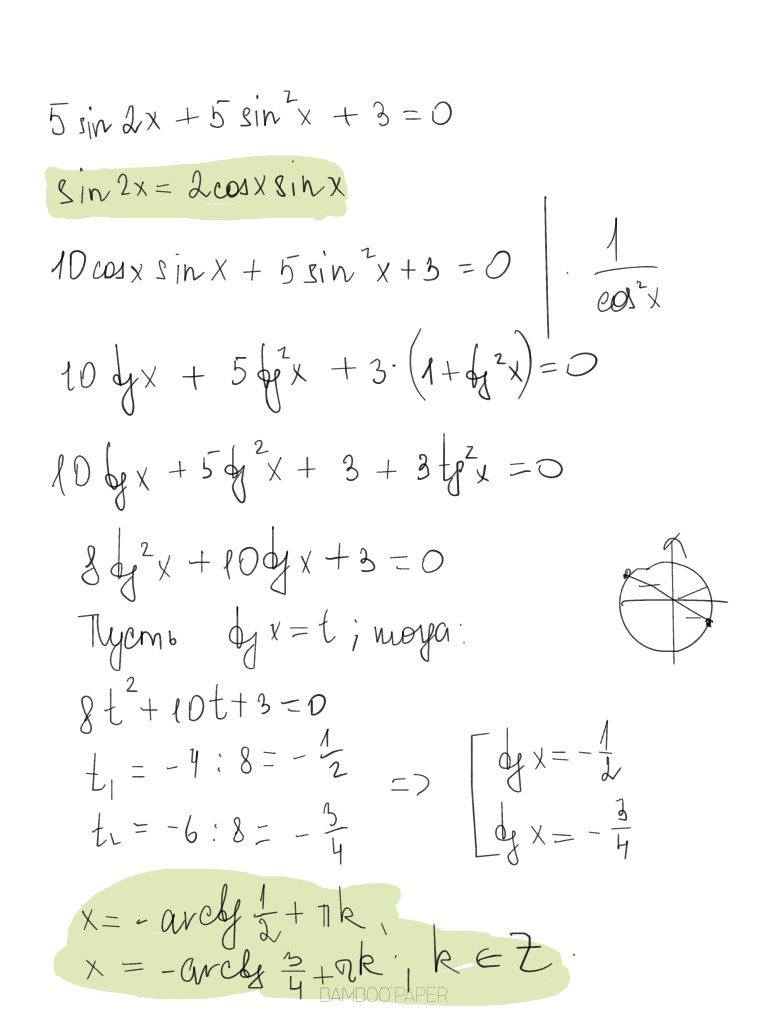 5 sin 2x + 5 sin²x + 3 = 0
sin 2x = 2cosx sin x
10 cosx sin x + 5 sin²x + 3 = 0 | · 1/cos²x
10 tgx + 5 tg²x + 3·(1+tg²x) = 0
10 tgx + 5 tg²x + 3 + 3 tg²x = 0
8 tg²x + 10 tgx + 3 = 0
Пусть tg x = t ; тогда:
8t² + 10t + 3 = 0
t₁ = -4 : 8 = -1/2 => [ tg x = -1/2
t₂ = -6 : 8 = -3/4 tg x = -3/4
x = -arctg 1/2 + πk,
x = -arctg 3/4 + πk ; k ∈ Z.
BAMBOO PAPER